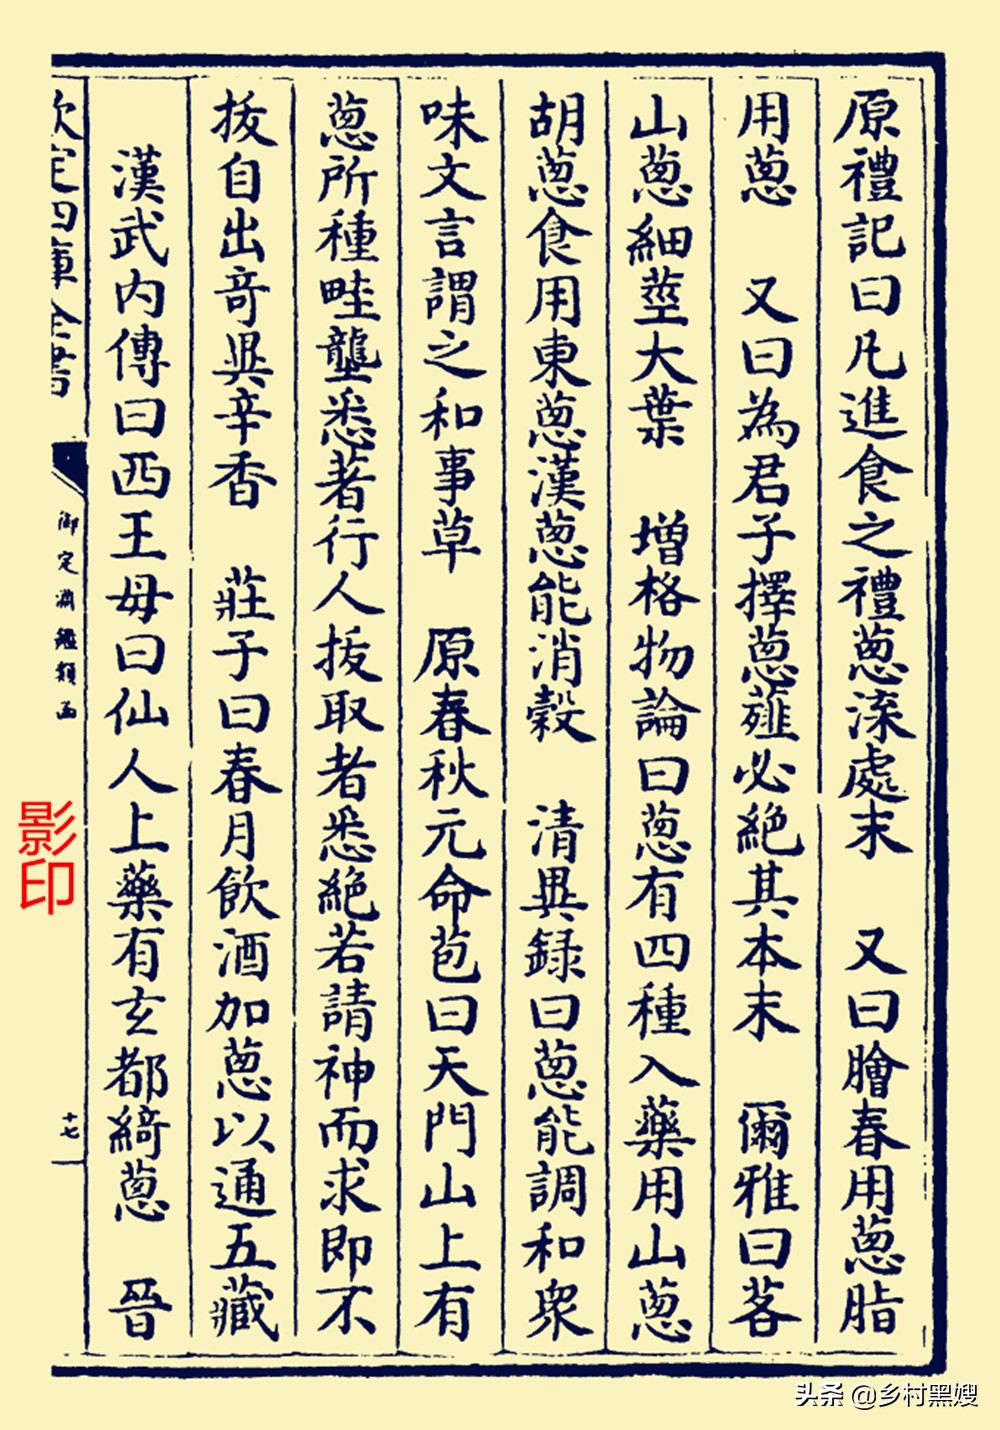 原禮記曰凡進食之禮蔥渿處末　又曰膾春用蔥脂
用蔥　又曰為君子擇蔥薤必絶其本末　爾雅曰茖
山蔥細莖大葉　增格物論曰蔥有四種入藥用山蔥
胡蔥食用東蔥漢蔥能消穀　清異録曰蔥能調和衆
味文言謂之和事草　原春秋元命苞曰天門山上有
蔥所種畦壟悉著行人拔取者悉絶若請神而求即不
拔自出竒異辛香　莊子曰春月飲酒加蔥以通五藏
漢武内傳曰西王母曰仙人上藥有玄都綺蔥　晉
欽定四庫全書
御定淵鑑類函
十七
影印
头条 @乡村黑嫂